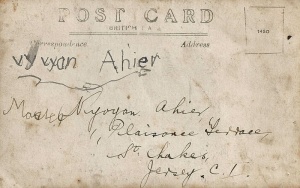 POST CARD
Correspondence Address
vyvyan Ahier
Master Vyvyan Ahier
1, Plaisance Terrace,
St. Lukes,
Jersey. C. I.